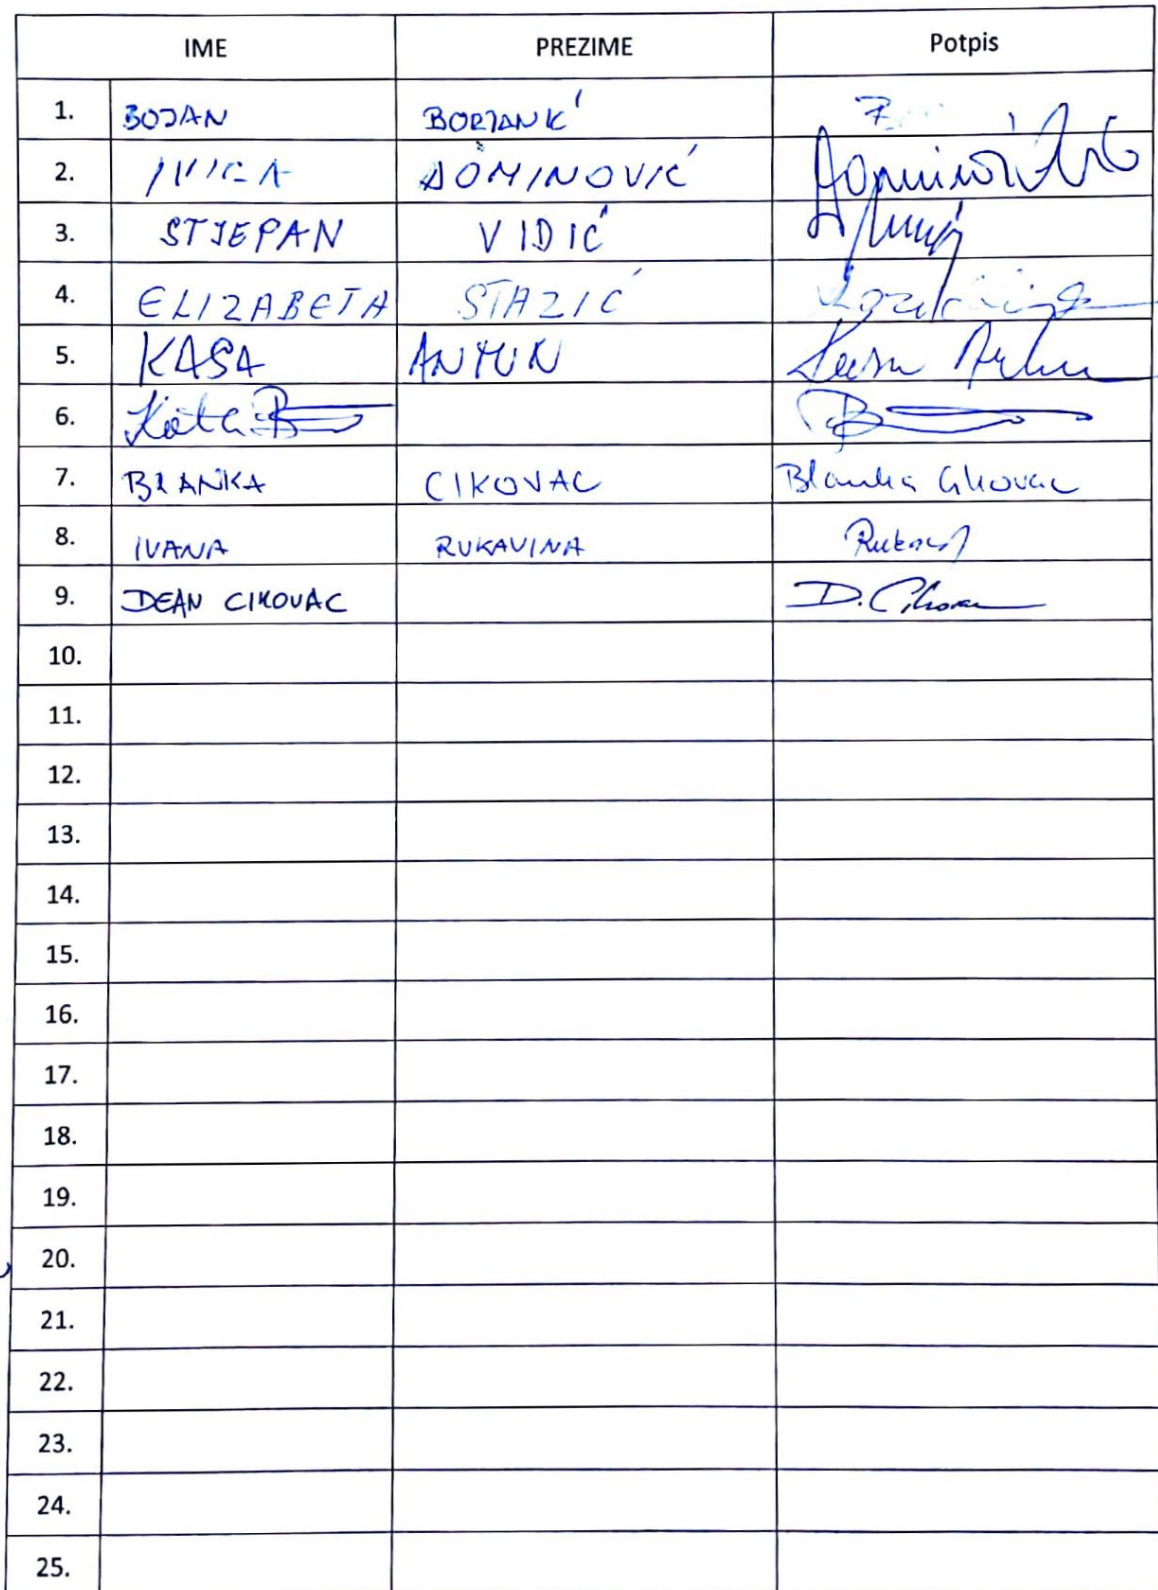 IME PREZIME Potpis
1. BOJAN
2. IVICA DOMINOVIĆ
3. STJEPAN VIDIĆ
4. ELIZABETA STAZIĆ
5. KASA ANTUN
6. Kata
7. BLANKA CIKOVAC Blanka Cikovac
8. IVANA RUKAVINA
9. DEAN CIKOVAC D. Cikovac
10.
11.
12.
13.
14.
15.
16.
17.
18.
19.
20.
21.
22.
23.
24.
25.